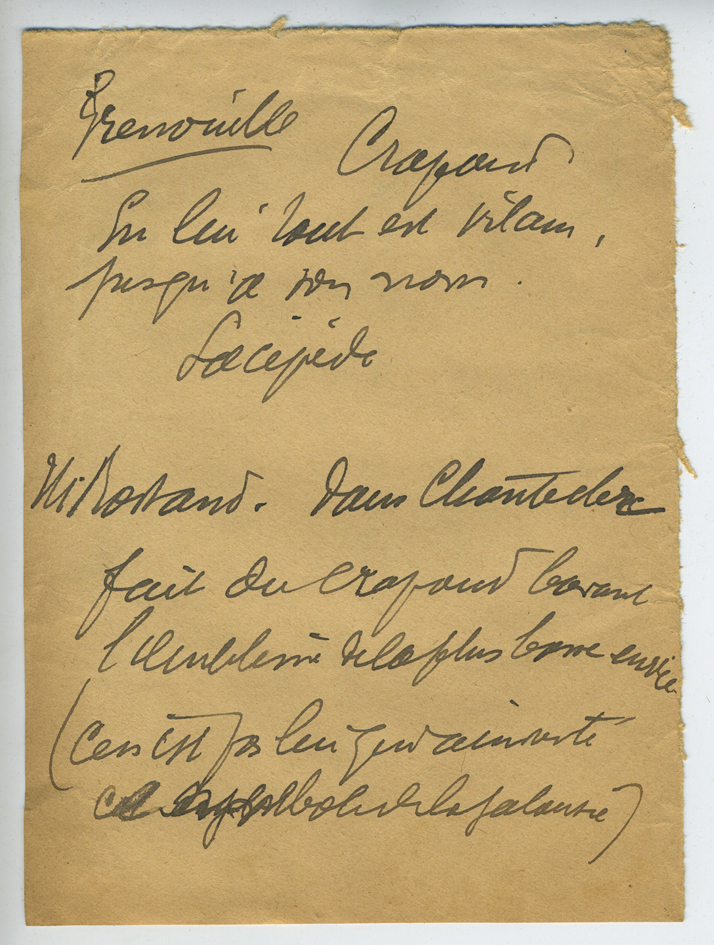 Grenouille
Crapaud
En lui tout est vilain,
jusqu'à son nom.
Lacépède
M. Rostand. dans Chantecler
fait du crapaud bavant
l'emblème de la plus basse envie
(Ce n'est pas lui qui a inventé
ce symbole de la jalousie)